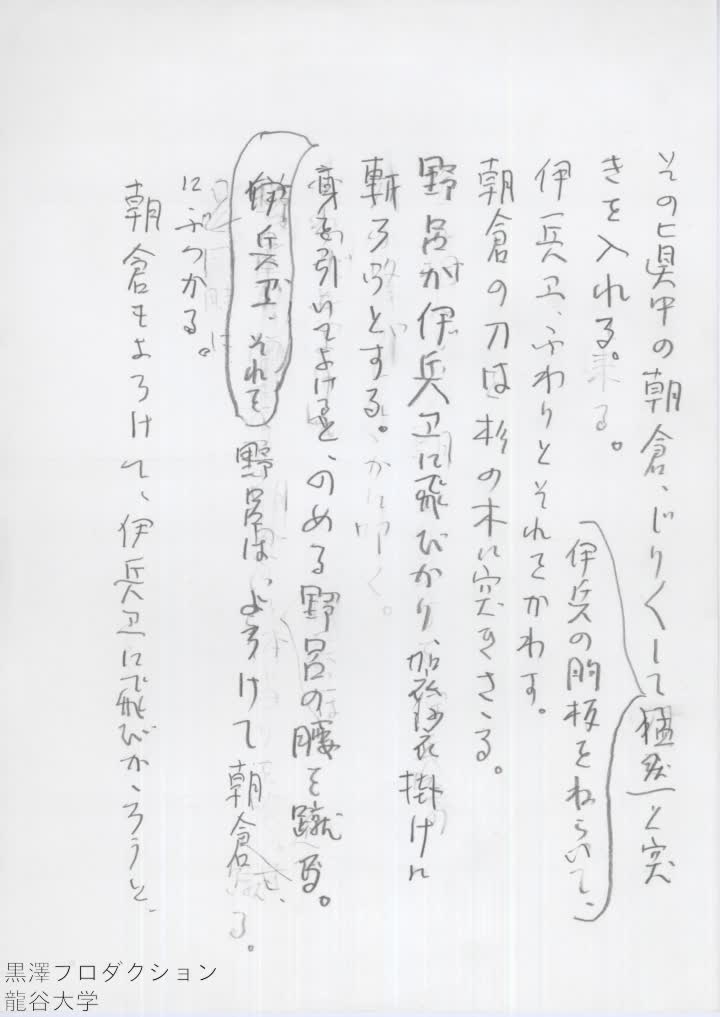 その真中の朝倉、じりくして猛然と突
伊兵の胸板をねらいて、
きを入れる。
伊兵卫、ふわりとそれをかわす。
朝倉の刀は杉の木に突きさゝる。
野呂が伊兵卫に飛びかり、袈裟掛けに
斬ろうとする。
身を引いてよけると、のめる野呂の腰を蹴る。
伊兵卫、それを
野呂は、よろけて朝倉
にぶつかる。
朝倉もよろけて、伊兵卫に飛びかゝろうと、
黒澤プロダクション
龍谷大学